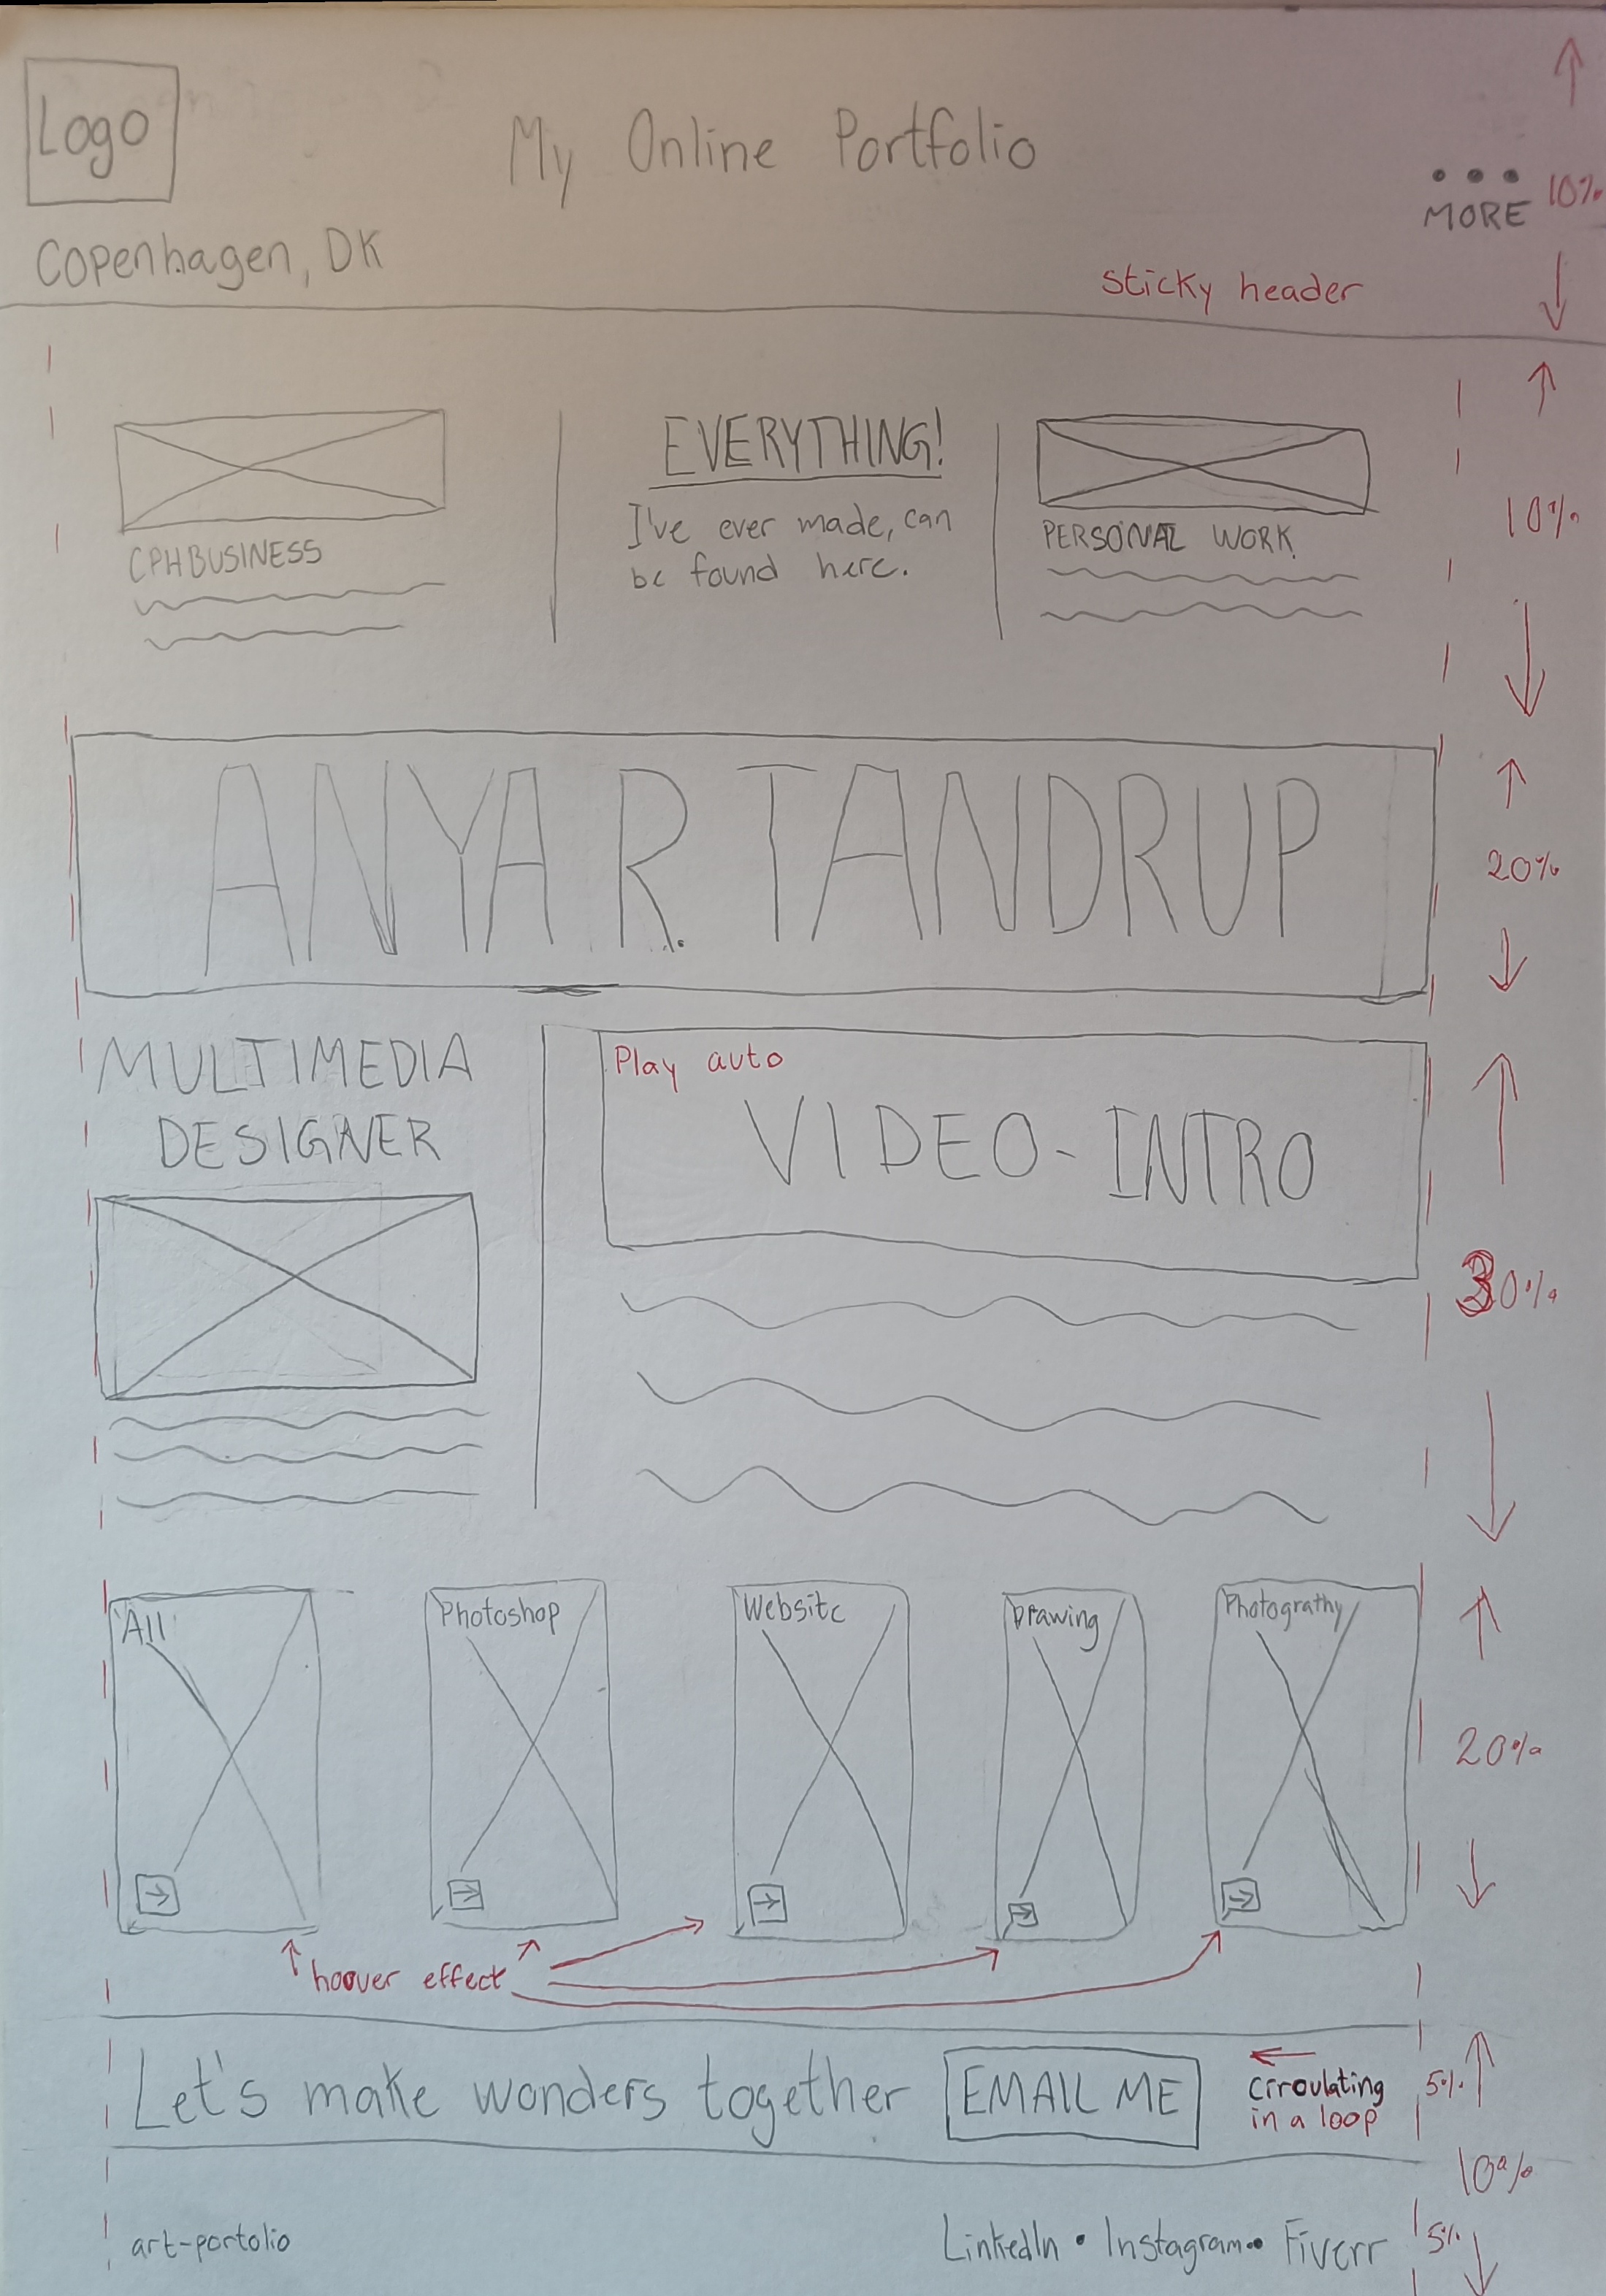 Logo
My Online Portfolio
MORE
10%
Copenhagen, DK
sticky header
EVERYTHING!
I've ever made, can
be found here.
CPHBUSINESS
PERSONAL WORK
10%
ANYA R. TANDRUP
20%
MULTIMEDIA
DESIGNER
Play auto
VIDEO-INTRO
30%
All
Photoshop
Website
Drawing
Photograthy
20%
hoover effect
Let's make wonders together
EMAIL ME
circulating
in a loop
5%
10%
art-portolio
LinkedIn • Instagram • Fiverr
5%